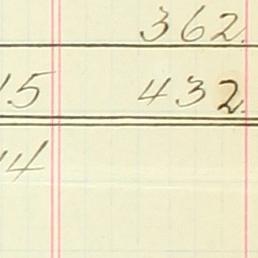 362.
15 432.
14